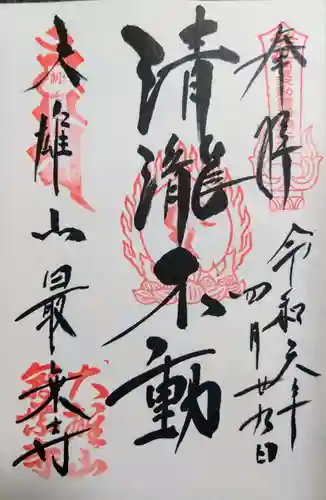 奉拝
令和六年四月廿九日
清瀧不動
大雄山最乗寺